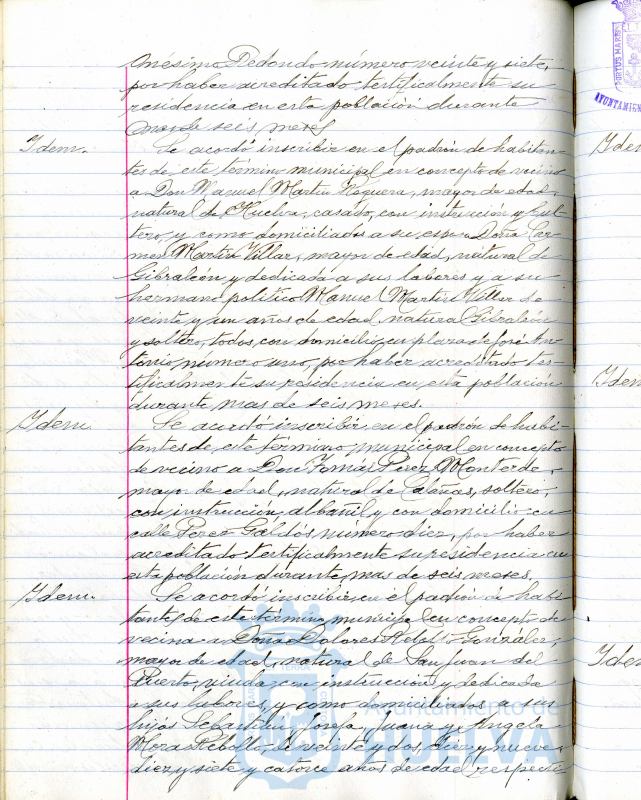 Onésimo Redondo número veinte y siete,
por haber acreditado testificalmente su
residencia en esta población durante
mas de seis meses.
Idem.
Se acordó inscribir en el padrón de habitan-
tes de este término municipal en concepto de vecino
a Don Manuel Martin Noguera, mayor de edad,
natural de Huelva, casado, con instrucción y
y como domiciliados a su esposa Doña Car-
men Martin Villar, mayor de edad, natural de
Gibraleón y dedicada a sus labores y a su
hermano político Manuel Martin Villar de
veinte y un años de edad, natural Gibraleón
y soltero, todos, con domicilio en plaza de José An-
tonio número uno, por haber acreditado tes-
tificalmente su residencia en esta población
durante mas de seis meses.
Idem.
Se acordó inscribir en el padrón de habi-
tantes de este término municipal en concepto
de vecino a Don Tomás Pérez Monterde,
mayor de edad, natural de Calañas, soltero,
con instrucción, albañil y con domicilio en
calle Perez Galdós número diez, por haber
acreditado testificalmente su residencia en
esta población durante mas de seis meses.
Idem.
Se acordó inscribir en el padrón de habi-
tantes de este término municipal en concepto de
vecina a Doña Dolores Gonzalez,
mayor de edad, natural de San Juan del
Puerto, viuda, con instrucción y dedicada
a sus labores, y como domiciliados a sus
hijos Sebastian, Josefa, Juana y Angela
Mora Rebollo, de veinte y dos, diez y nueve,
diez y siete y catorce años de edad respecti-
Ayuntamiento de
HUELVA
PORTUS MARIS
AYUNTAMIEN
Idem
Idem
Idem